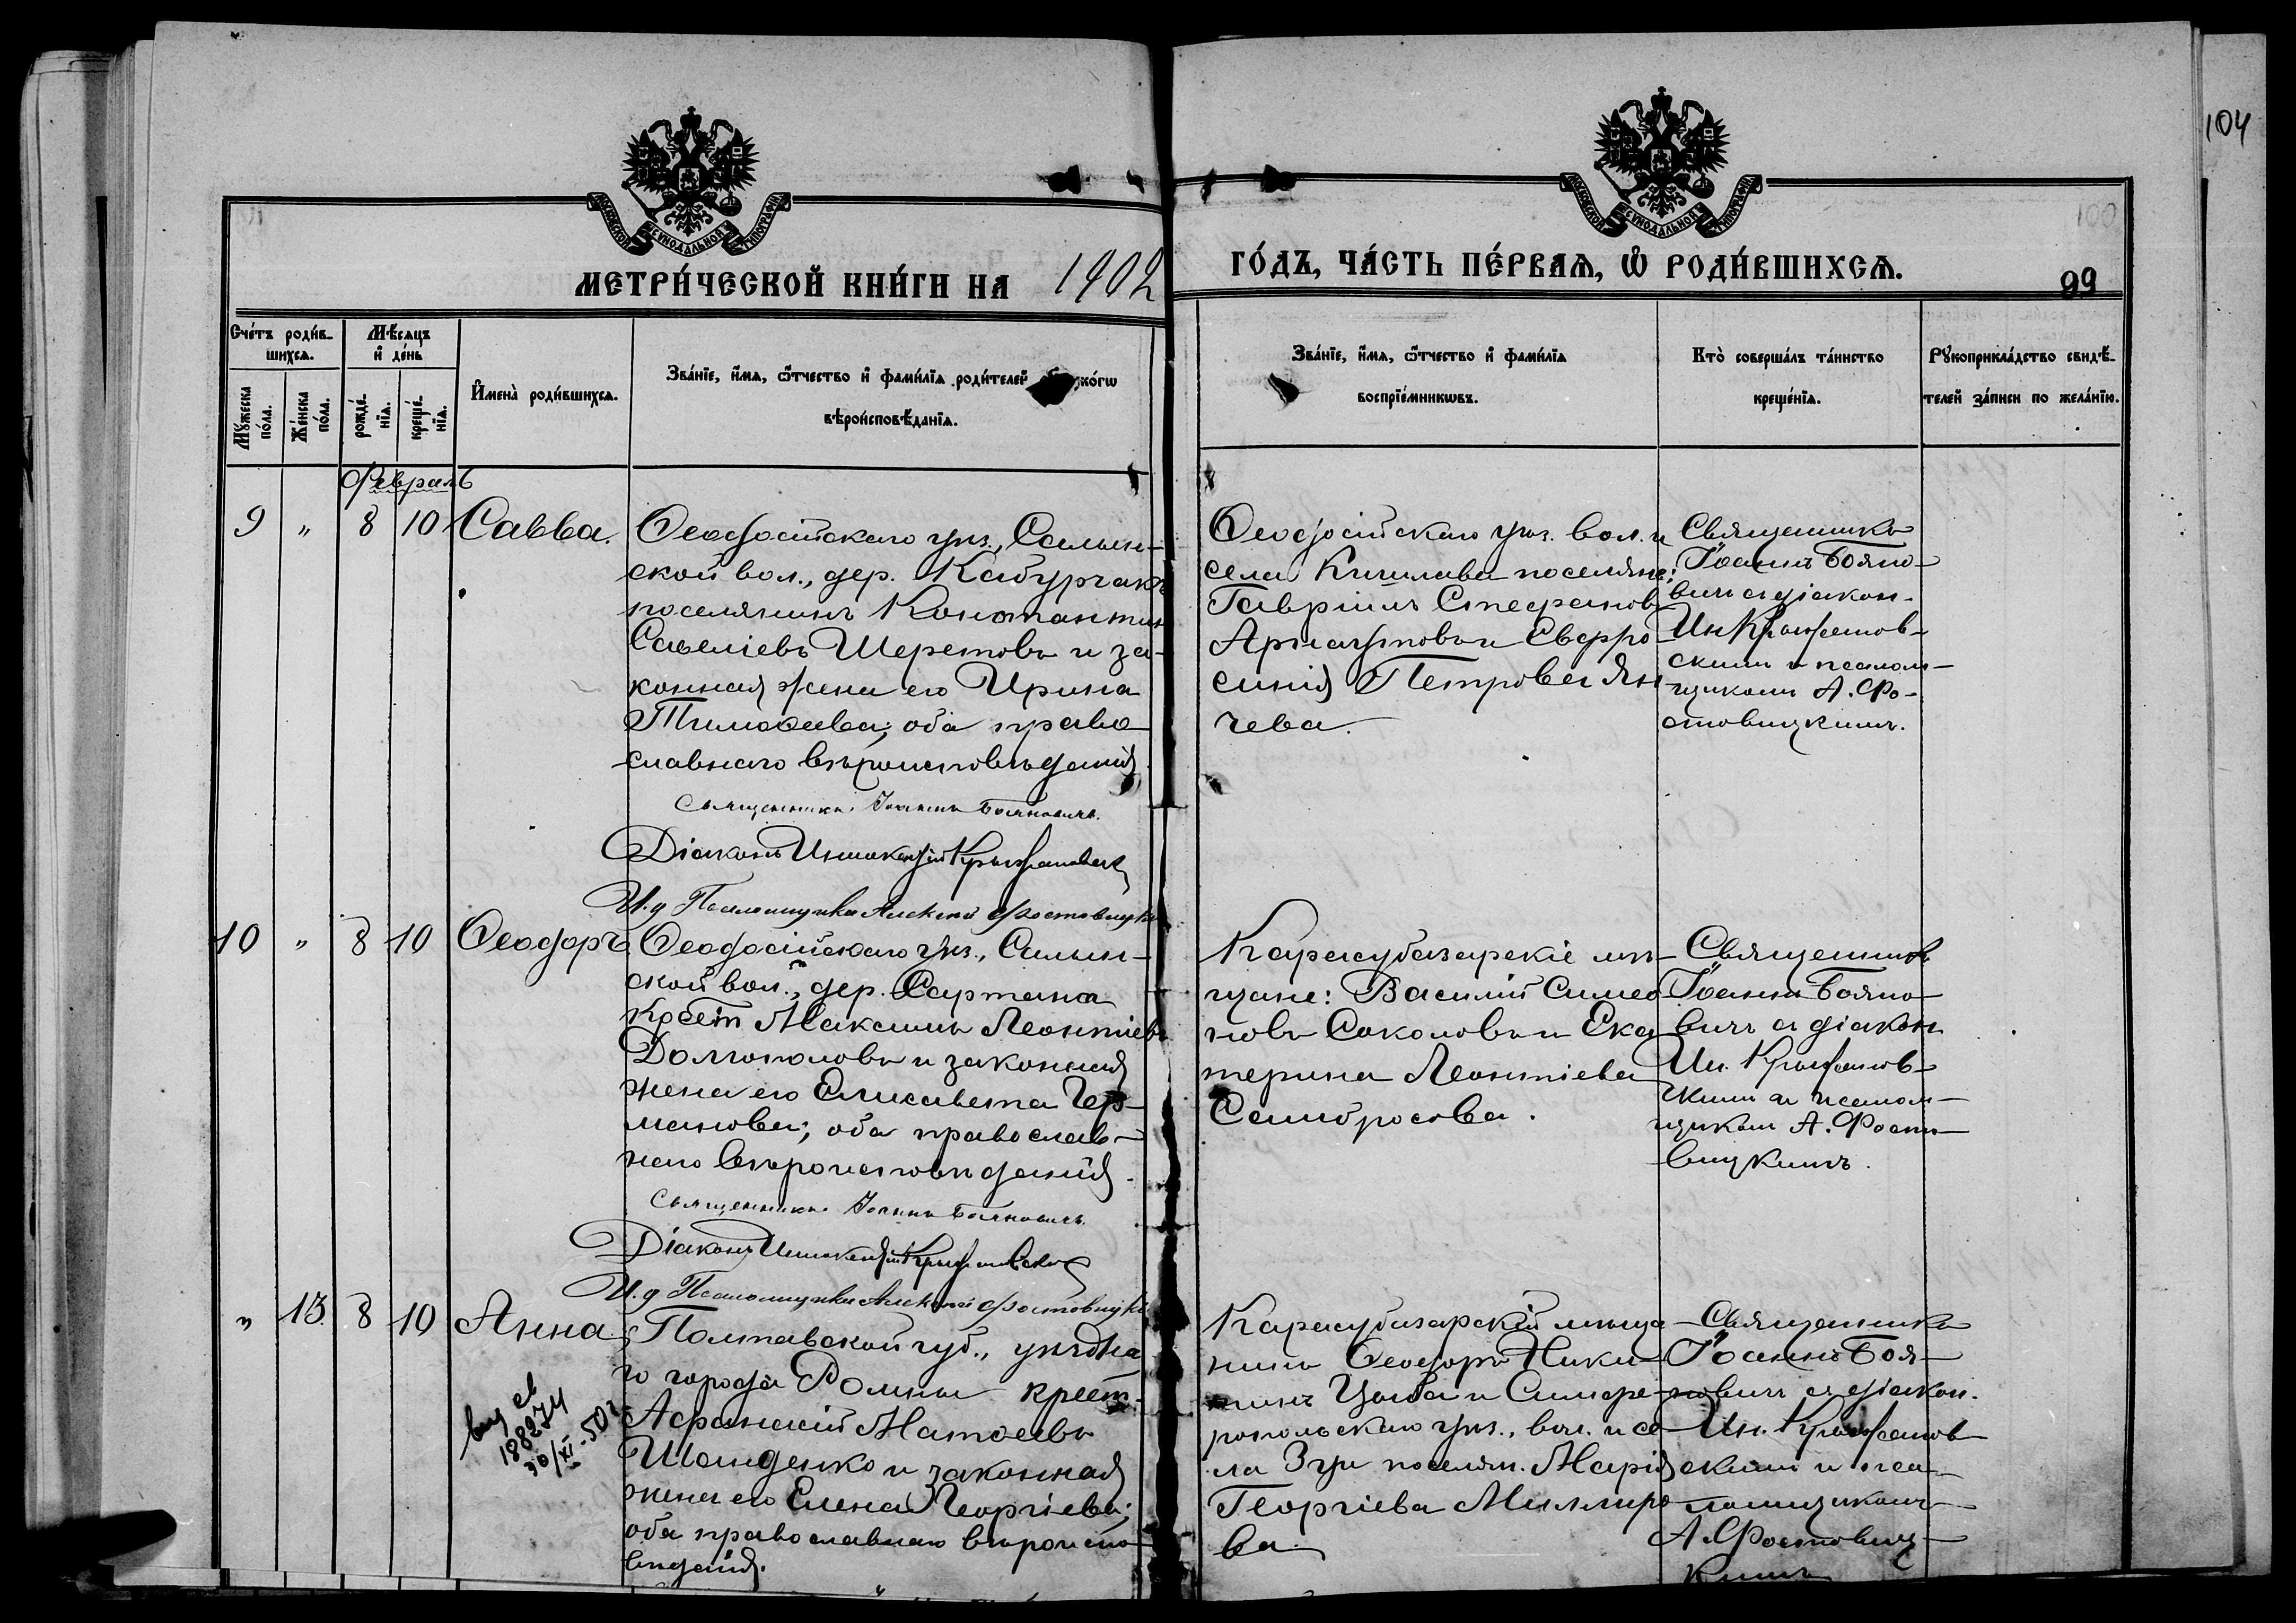 104
МОСКОВСКОЙ СѴНОДАЛЬНОЙ ТИПОГРАФІИ
МОСКОВСКОЙ СѴНОДАЛЬНОЙ ТИПОГРАФІИ
100
МЕТРИ́ЧЕСКОЙ КНИ́ГИ НА 1902
ГО́ДЪ, ЧА́СТЬ ПЕ́РВАѦ, Ѡ РОДИ́ВШИХСѦ.
99
Сче́тъ роди́в-
шихсѧ.
Мꙋ́жеска по́ла.
Же́нска по́ла.
Мѣ́сѧцъ
и де́нь
рожде́-
нїѧ.
креще́-
нїѧ.
Имена̀ роди́вшихсѧ.
Зва́нїе, и́мѧ, ѻ́тчество и фами́лїѧ роди́телей
вѣроисповѣ́данїѧ.
Зва́нїе, и́мѧ, ѻ́тчество и фами́лїѧ
воспрїе́мникѡвъ.
Кто̀ соверша́лъ та́инство
креще́нїѧ.
Рꙋкоприкла́дство свидѣ́-
телей за́писи по жела́нїю.
Февраль
9 " 8 10 Савва.
Ѳеодосійскаго уѣз., Салын-
ской вол., дер. Кабурчакъ
поселянинъ Константин
Савеліевъ Шереметовъ и за-
конная жена его Ирина
Тимоѳеева; оба право-
славнаго вѣроисповѣданія.
Священникъ Іоаннъ Бояновичъ.
Діаконъ Иннокентій Крыжановскій
И. д Псаломщика Алексѣй Фостовицкій
Ѳеодосійскаго уѣз. вол. и
села Кишлава поселяне:
Гавріилъ Стефановъ
Арнаутовъ и Евфро
синія Петрова Ян
чева.
Священникъ
Іоаннъ Бояно-
вичъ съ діакон.
Ин. Крыжанов-
скимъ и псалом-
щикомъ А. Фо-
стовицкимъ.
10 " 8 10 Ѳеодоръ
Ѳеодосійскаго уѣз., Салын-
ской вол., дер. Сартана
крест. Максимъ Леонтіевъ
Долгополовъ и законная
жена его Елисавета Гер-
манова; оба православ-
наго вѣроисповѣданія.
Священникъ Іоаннъ Бояновичъ.
Діаконъ Иннокентій Крыжановскій
И. д Псаломщика Алексѣй Фостовицкій
Карасубазарскіе мѣ-
щане: Василій Симео
новъ Соколовъ и Ека
терина Леонтіева
Самбросова.
Священникъ
Іоаннъ Бояно-
вичъ съ діакон
Ин. Крыжанов-
скимъ и псалом-
щикомъ А. Фосто-
вицкимъ.
" 13. 8 10 Анна
Полтавской губ., уѣздна
го города Ромны крест.
Аѳанасій Матѳеевъ
законная
жена его Елена Георгіева;
оба православнаго вѣроиспо
вѣданія.
188274
30/XI-50г
Карасубазарскій мѣща
нинъ Ѳеодоръ Ники-
тинъ и Симфе-
ропольскаго уѣз., вол. и се
ла Зуи поселян. Марія
Георгіева
ва.
Священникъ
Іоаннъ Боя-
новичъ съ діакон.
Ин. Крыжанов
скимъ и пса-
ломщикомъ
А. Фостовиц-
кимъ